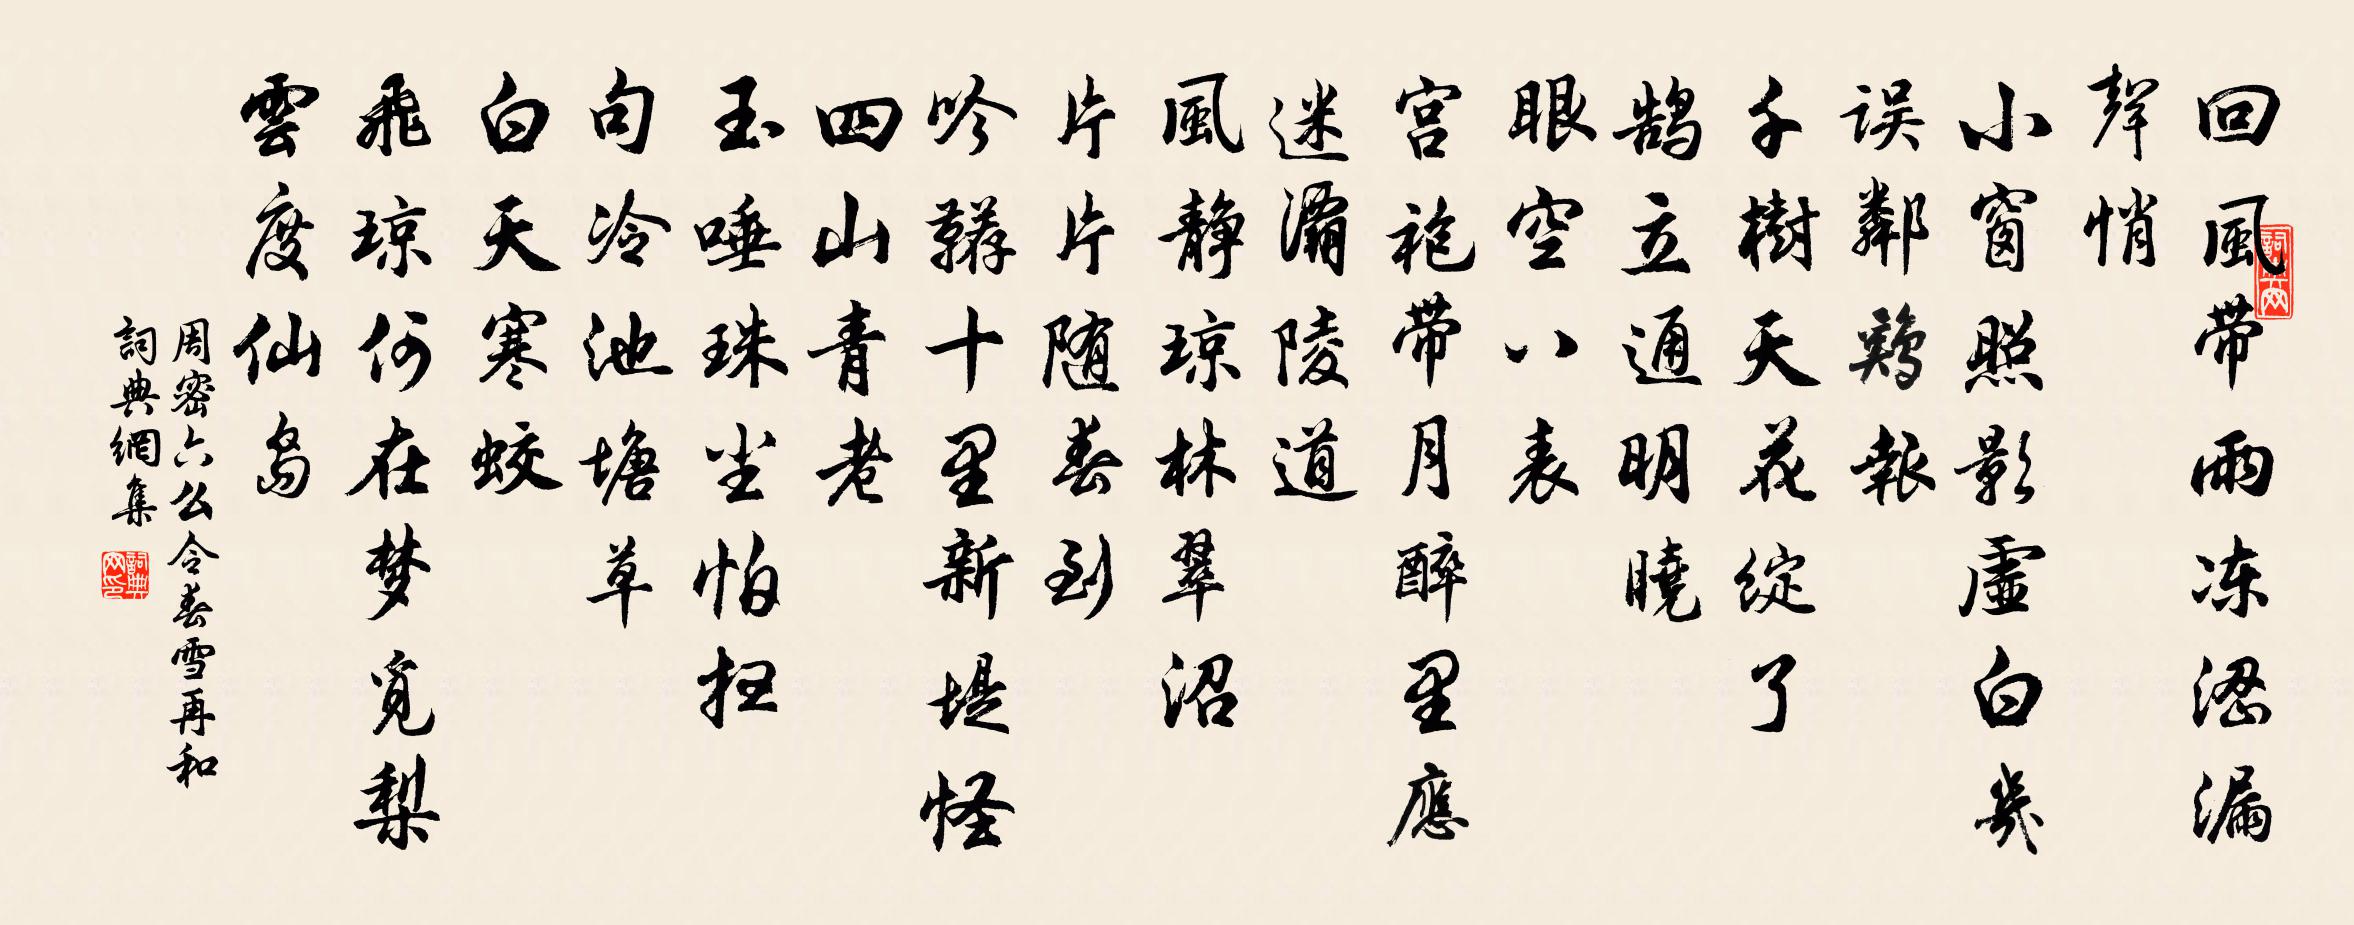 回風带雨冻涩漏
聲悄
小窗照影虛白幾
误鄰鷄報
千樹天花綻了
鹄立通明曉
眼空八表
宫袍带月醉里應
迷灞陵道
風静琼林翠沼
片片随春到
吟鞯十里新堤怪
四山青老
玉唾珠尘怕扫
句冷池塘草
白天寒蛟
飛琼何在梦覓梨
雲度仙岛
周密六么令春雪再和
詞典網集
詞典网印